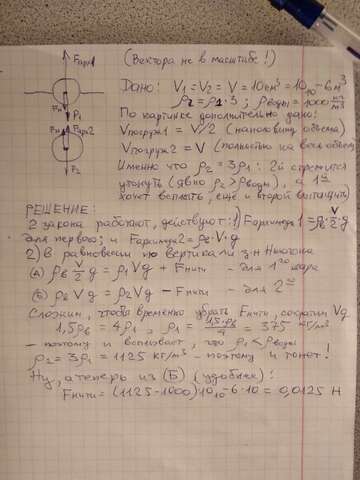 Fарх1
(Вектора не в масштабе!)
Fн
P1
Fн Fарх2
P2
Дано: V1 = V2 = V = 10см³ = 10·10^-6 м³
ρ2 = ρ1·3; ρводы = 1000 кг/м³
По картинке дополнительно дано:
Vпогруж1 = V/2 (наполовину объема)
Vпогруж2 = V (полностью на весь объем)
Именно что ρ2 = 3ρ1: 2й стремится
утонуть (явно ρ2 > ρводы), а 1й
хочет всплыть, ещё и второй вытащить)
РЕШЕНИЕ:
2 закона работают, действуют: 1) Fархимеда1 = ρв·V/2·g
для первого; и Fархимеда2 = ρв·V·g
2) В равновесии по вертикали з-н Ньютона
(А) ρв V/2 g = ρ1Vg + Fнити - для 1го шара
(Б) ρвVg = ρ2Vg − Fнити - для 2го
Сложим, чтобы временно убрать Fнити, сократим Vg
1,5ρв = 4ρ1, ρ1 = 1,5·ρв/4 = 375 кг/м³
- поэтому и всплывает, что ρ1 < ρводы
ρ2 = 3ρ1 = 1125 кг/м³ - поэтому и тонет!
Ну, а теперь из (Б) (удобнее):
Fнити = (1125-1000)·10·10^-6·10 = 0,0125 Н